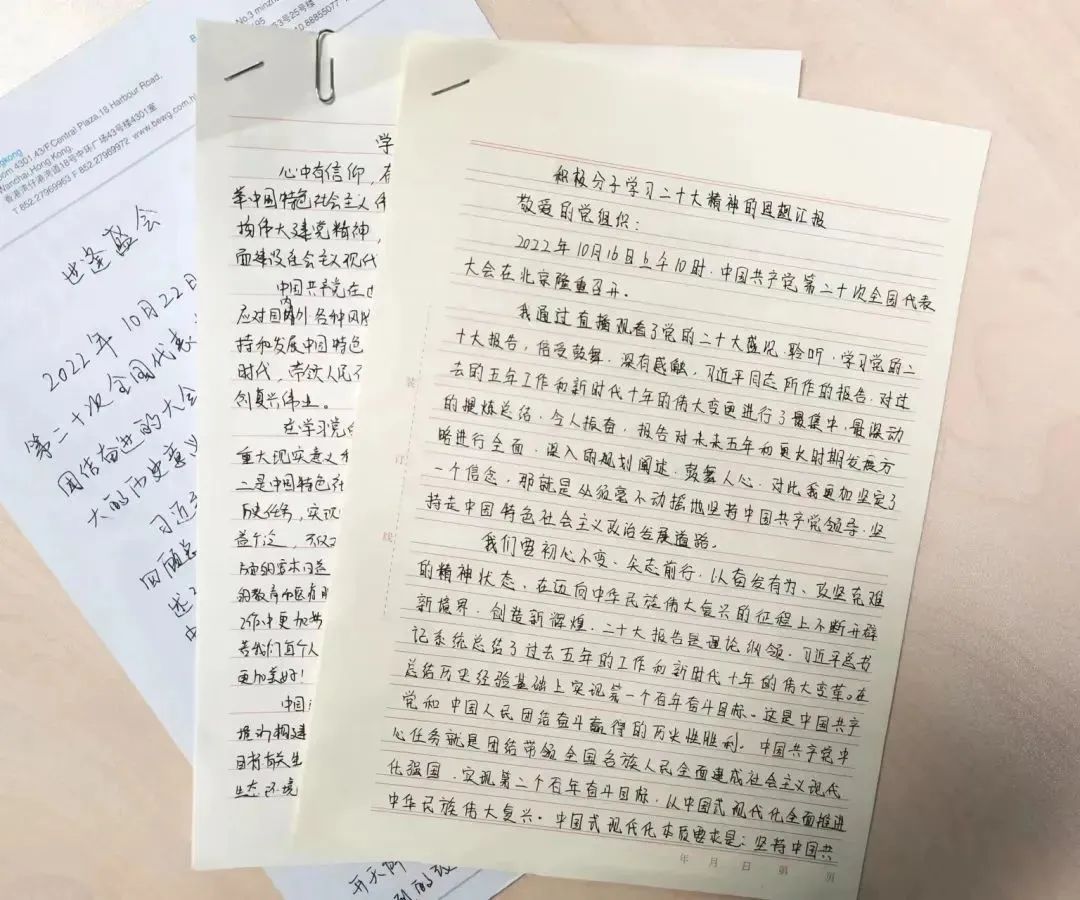 No.3 minz
3号25号楼
10.88855077
Central Plaza,18 Harbour Road,
Wanchai.Hong Kong.
香港湾仔港湾道18号中环广场43号楼4301室
T 852.27969963 F 852.27969972 www.bewg.com.h
世逢盛会
2022年10月22日
第二十次全国代表
团结奋进的大会
大的历史意义
习近
回顾总
述
学
心中有信仰,
华中国特色社会主义伟
构伟大建党精神,
面建设社会主义现代
中国共产党在
应对国内外各种风险
持和发展中国特色
时代,带领人民
创复兴伟业。
在学习党
重大现实意义
二是中国特色社
历史任务,实现
更加美好!
中国
生态环境
积极分子学习二十大精神的思想汇报
敬爱的党组织:
2022年10月16日上午10时.中国共产党第二十次全国代表
大会在北京隆重召开。
我通过直播观看了党的二十大盛况.聆听.学习党的二
十大报告,倍受鼓舞.深有感触,习近平同志所作的报告.对过
去的五年工作和新时代十年的伟大变更进行了最集中.最深动
的提炼总结.令人振奋.报告对未来五年和更长时期发展方
略进行全面.深入的规划阐述.鼓舞人心.对此我更加坚定了
一个信念,那就是必须毫不动摇地坚持中国共产党领导.坚
持走中国特色社会主义政治发展道路。
我们要初心不变、矢志前行.以奋发有为、攻坚克难
的精神状态.在迈向中华民族伟大复兴的征程上不断开辟
新境界.创造新辉煌.二十大报告是理论纲领.习近平总书
记系统总结了过去五年的工作和新时代十年的伟大变革。在
总结历史经验基础上实现第一个百年奋斗目标。这是中国共产
党和中国人民团结奋斗赢得的历史性胜利.中国共产党中
心任务就是团结带领全国各族人民全面建成社会主义现代
化强国.实现第二个百年奋斗目标.以中国式现代化全面推进
中华民族伟大复兴.中国式现代化本质要求是:坚持中国共
装
订
线
年 月 日 第 页